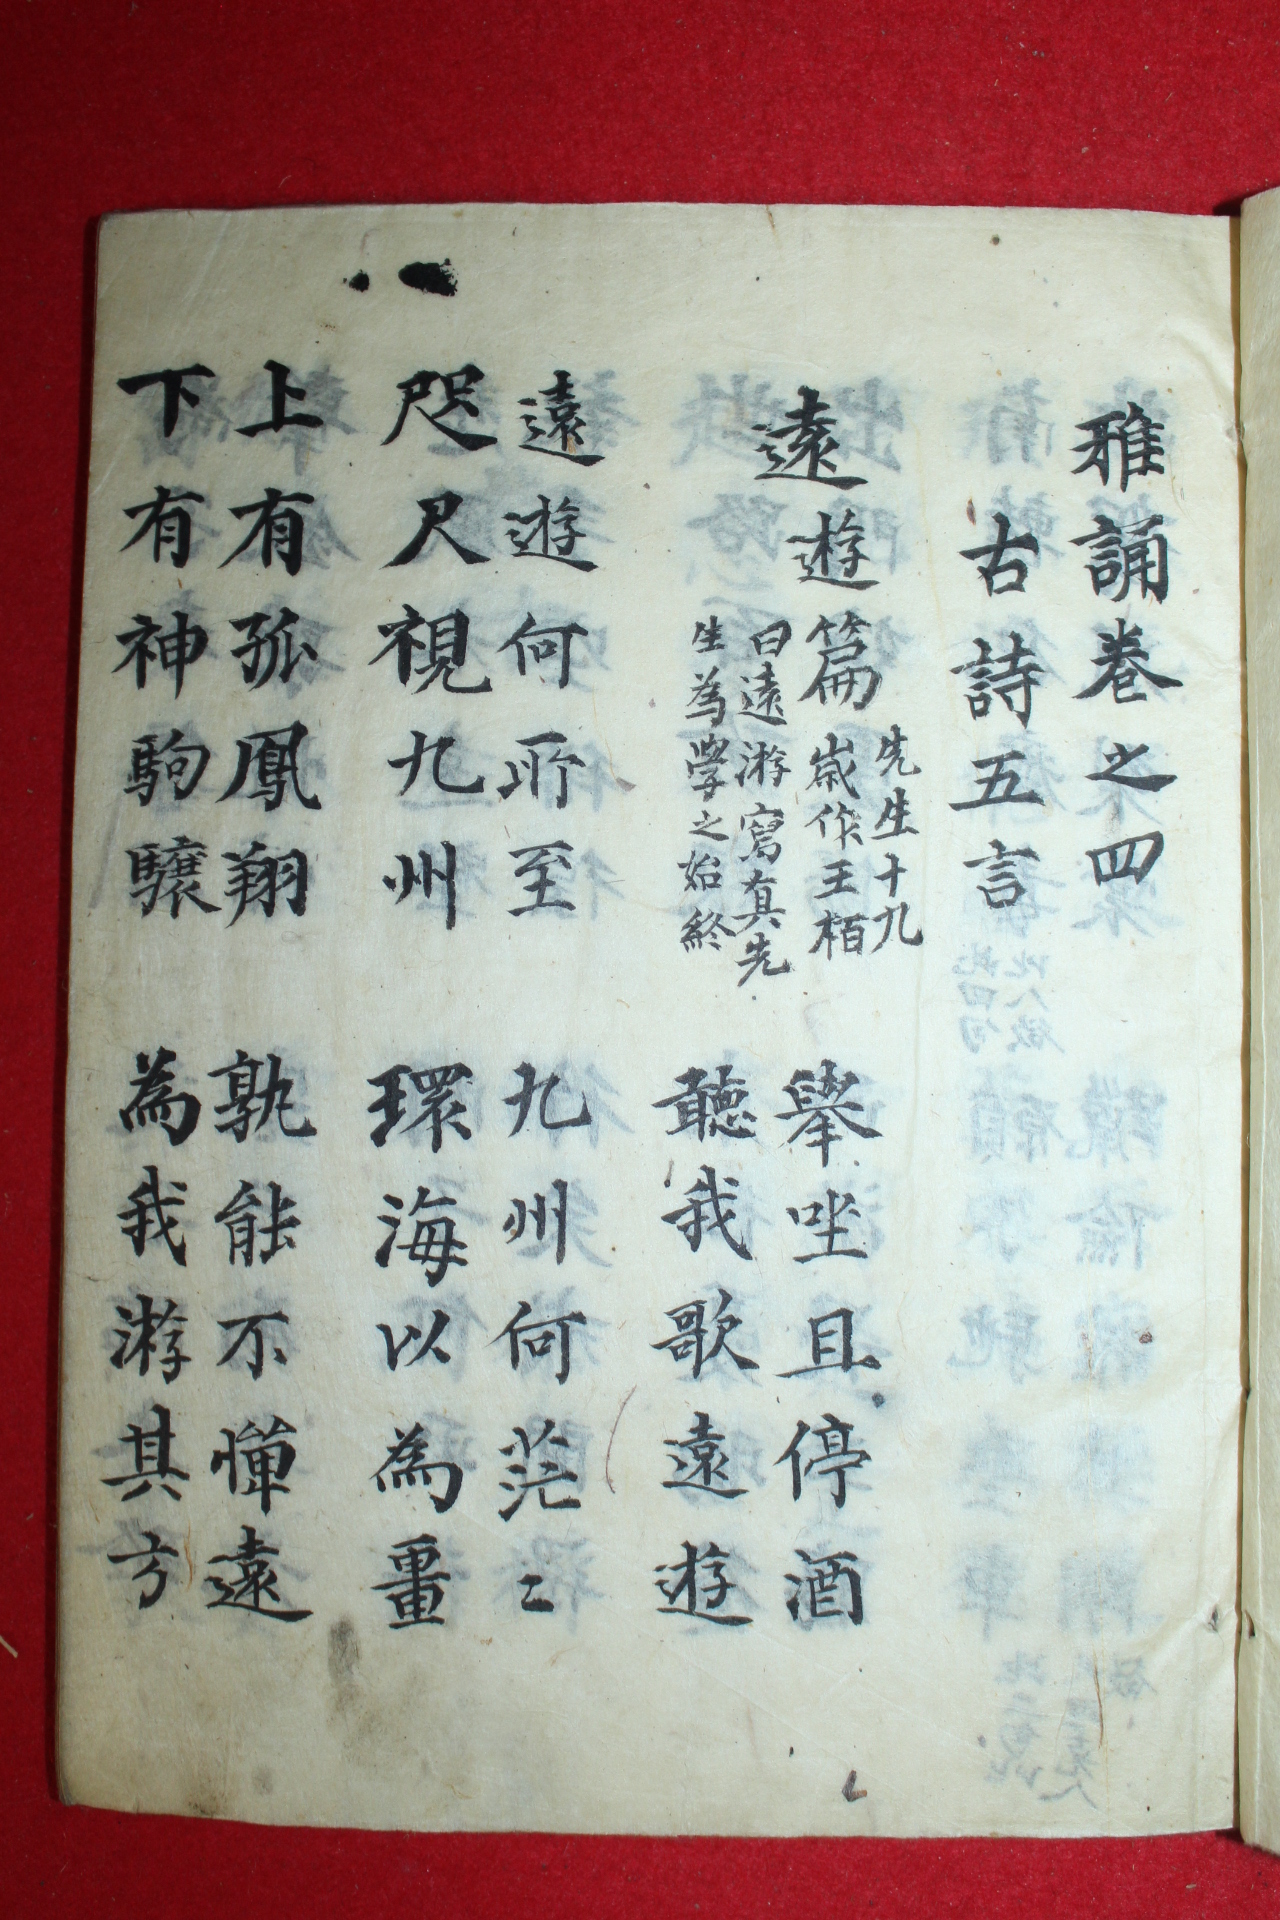 雅誦卷之四
古詩五言
遠遊篇
先生十九
歲作王栢
曰遠游寫真先
生為學之始終
舉坐且停酒
聽我歌遠遊
遠遊何所至
咫尺視九州
九州何茫〻
環海以為畺
上有孤鳳翔
下有神駒驤
孰能不憚遠
為我游其方